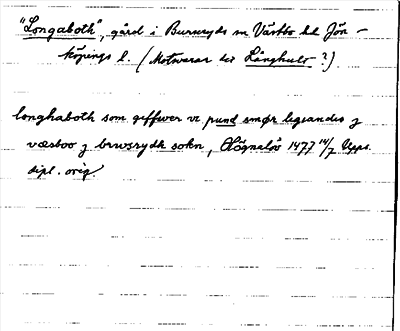 "Longaboth", gård i Burseryds sn Västbo hd Jön-
köpings l. (Motsvarar det Långhult?)
longhaboth som giffwer vi pund smør ligiandis j
væsboo j brwsrydh sokn, Högnalöv 1477 14/7 Upps.
dipl. orig